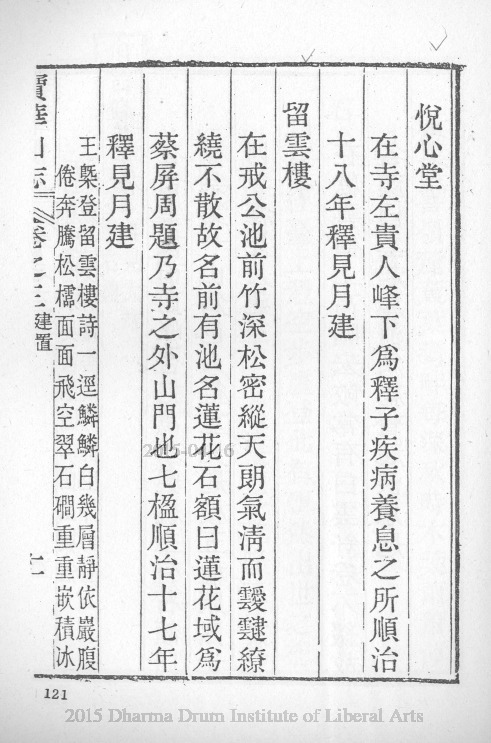 悅心堂
在寺左貴人峰下爲釋子疾病養息之所順治
十八年釋見月建
留雲樓
在戒公池前竹深松密縱天朗氣淸而靉靆繚
繞不散故名前有池名蓮花石額曰蓮花域爲
蔡屏周題乃寺之外山門也七楹順治十七年
釋見月建
王槩登留雲樓詩一逕鱗鱗白幾層靜依巖腹
倦奔騰松櫺面面飛空翠石磵重重嵌積冰
寶華山志 卷之三 建置
121
2015 Dharma Drum Institute of Liberal Arts